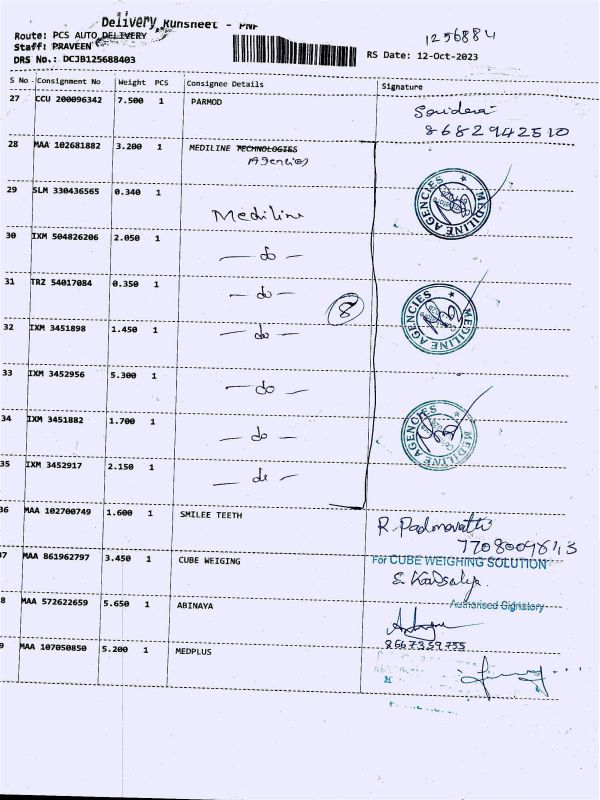 Delivery Runsheet - PNF
1256884
Route: PCS AUTO DELIVERY
Staff: PRAVEEN
DRS No.: DCJB125688403
RS Date: 12-Oct-2023
S No Consignment No Weight PCS Consignee Details Signature
27 CCU 200096342 7.500 1 PARMOD
8682942510
28 MAA 102681882 3.200 1 MEDILINE TECHNOLOGIES
Agencies
MEDILINE AGENCIES
29 SLM 330436565 0.340 1 Mediline
30 IXM 504826206 2.050 1 - do -
31 TRZ 54017084 0.350 1 - do -
8
MEDILINE AGENCIES
32 IXM 3451898 1.450 1 - do -
33 IXM 3452956 5.300 1 - do -
34 IXM 3451882 1.700 1 - do -
MEDILINE AGENCIES
35 IXM 3452917 2.150 1 - do -
36 MAA 102700749 1.600 1 SMILEE TEETH
R. Padmavathi
7708009843
37 MAA 861962797 3.450 1 CUBE WEIGING
For CUBE WEIGHING SOLUTION
Authorised Signatory
8 MAA 572622659 5.650 1 ABINAYA
8667359755
9 MAA 107050850 5.200 1 MEDPLUS